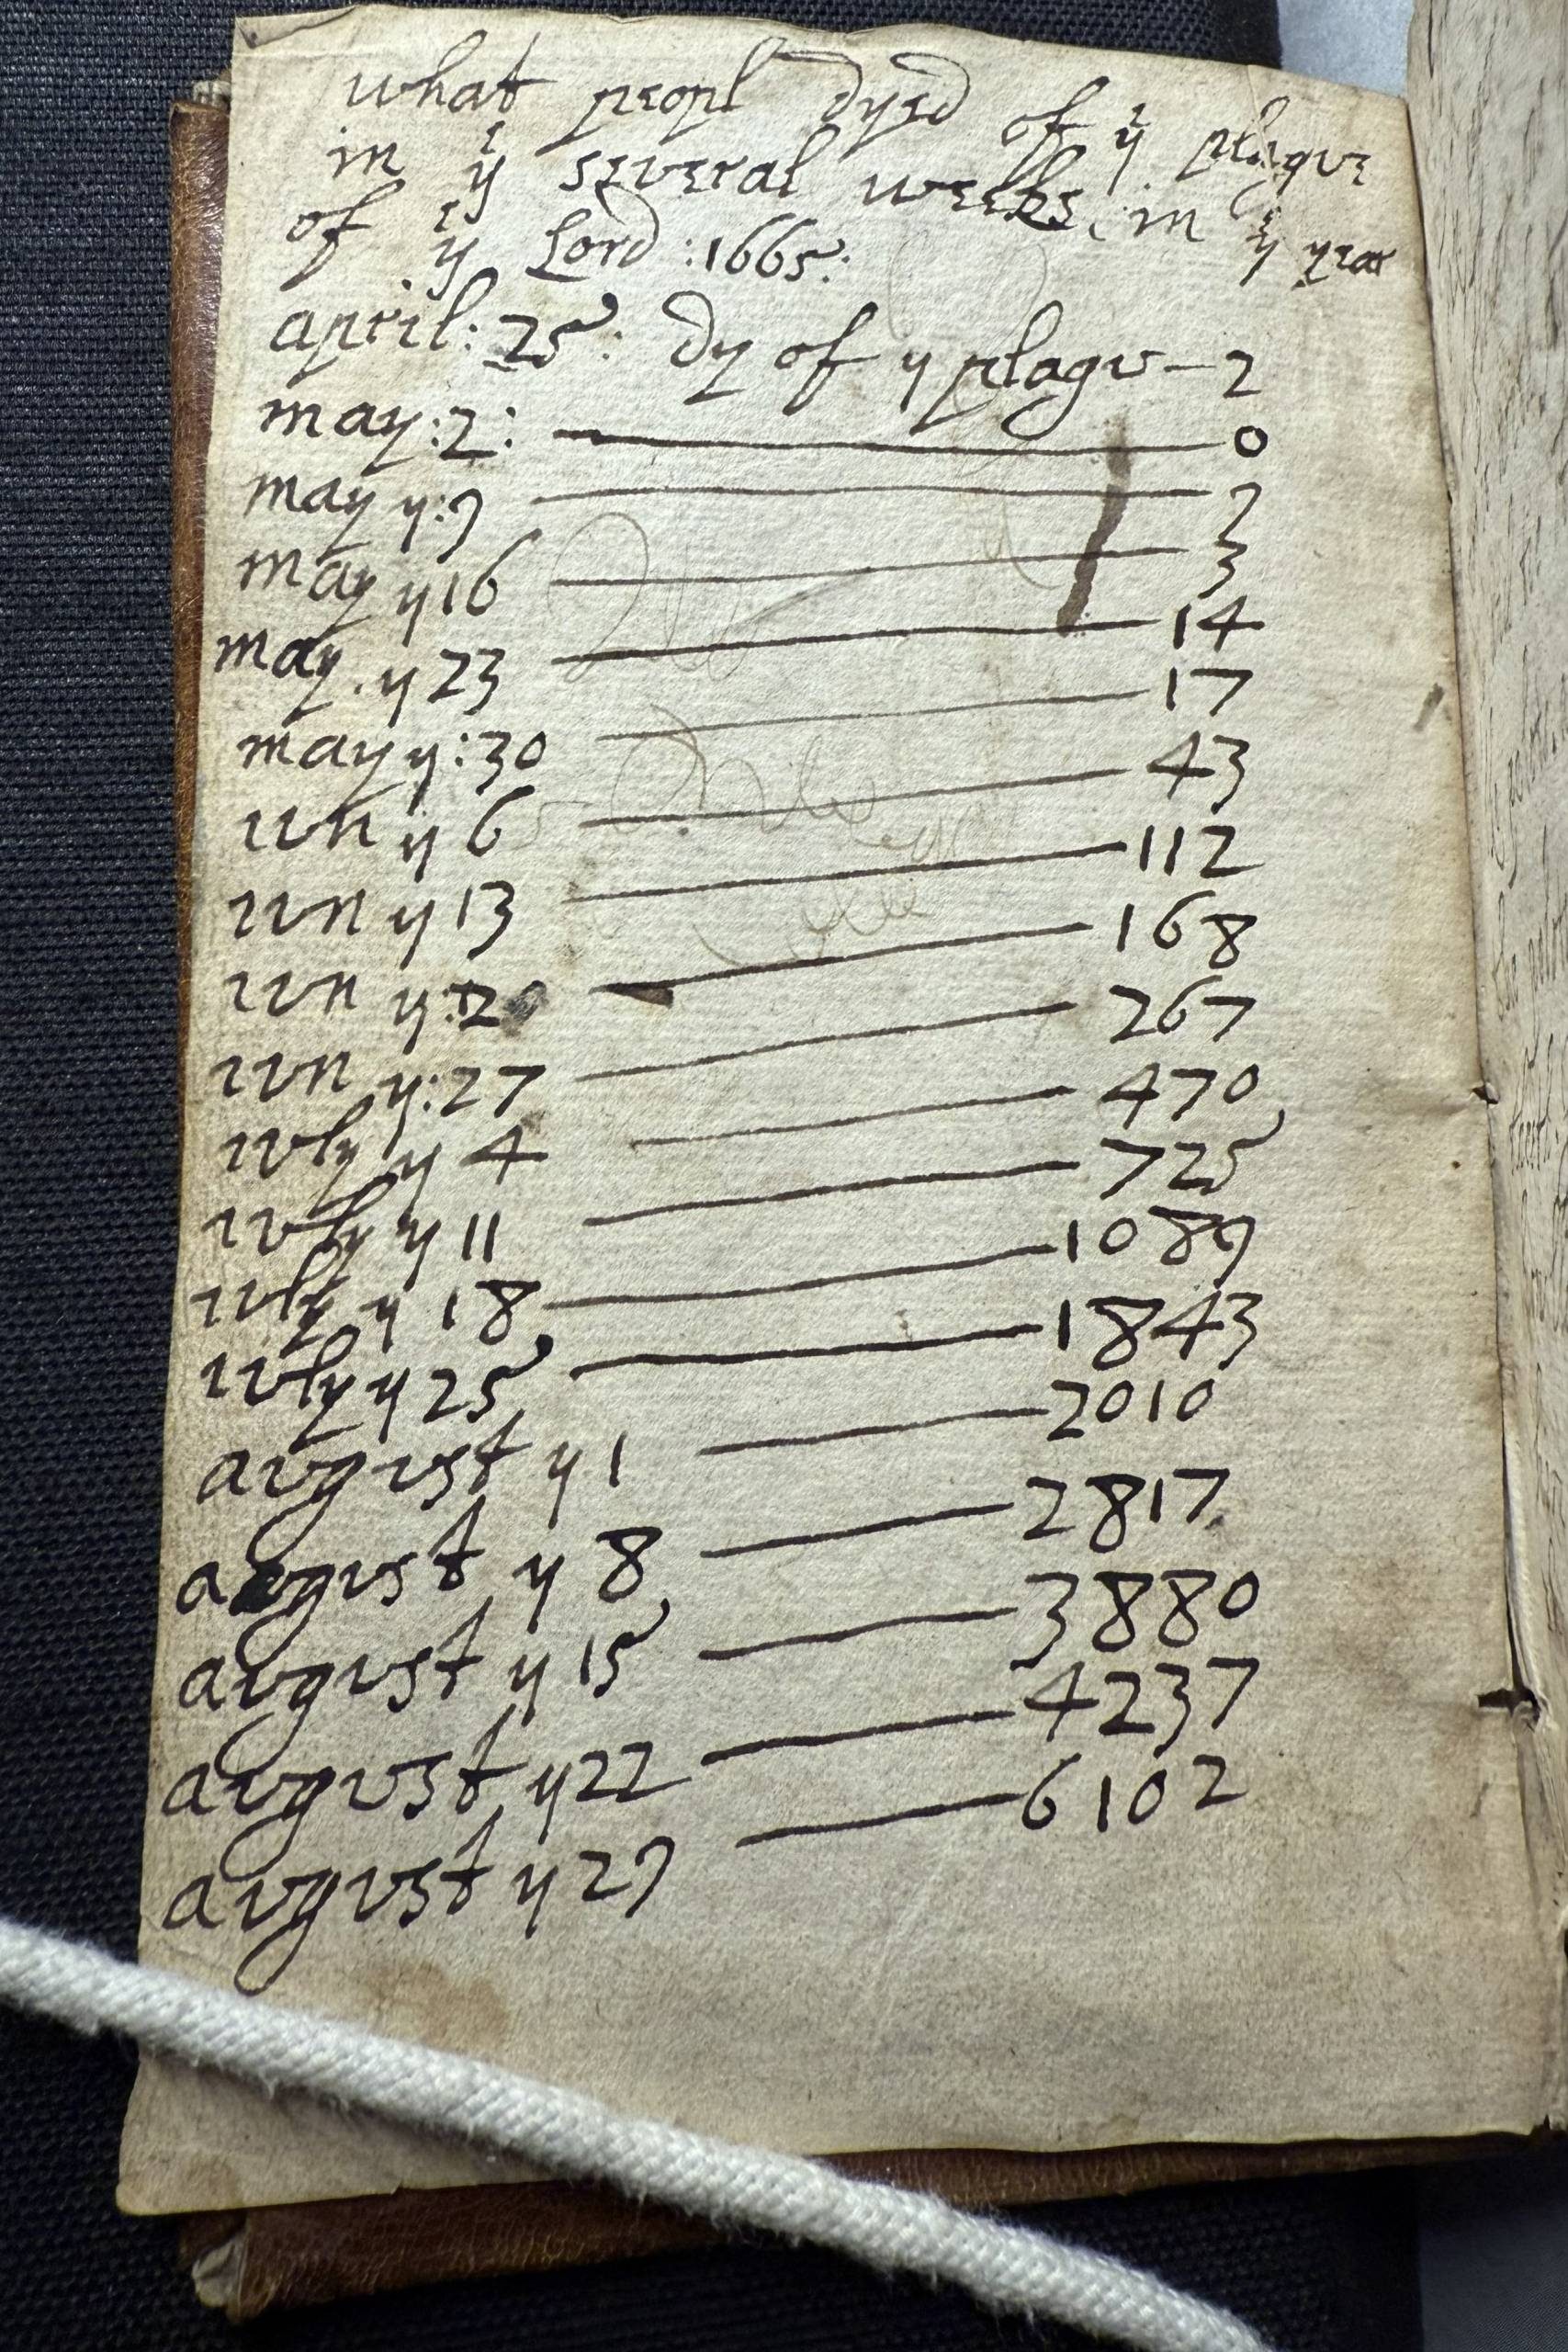 what peopl dyed of yᵉ plague
in yᵉ several weeks in yᵉ year
of yᵉ Lord :1665:
april: 25: dy of y plagv — 2
may:2: — 0
may y:9 — 2
may y 16 — 3
may. y 23 — 14
may y:30 — 17
ivn y 6 — 43
ivn y 13 — 112
ivn y:20 — 168
ivn y:27 — 267
ivly y 4 — 470
ivly y 11 — 725
ivly y 18 — 1089
ivly y 25 — 1843
avgvst y 1 — 2010
avgvst y 8 — 2817
avgvst y 15 — 3880
avgvst y 22 — 4237
avgvst y 29 — 6102